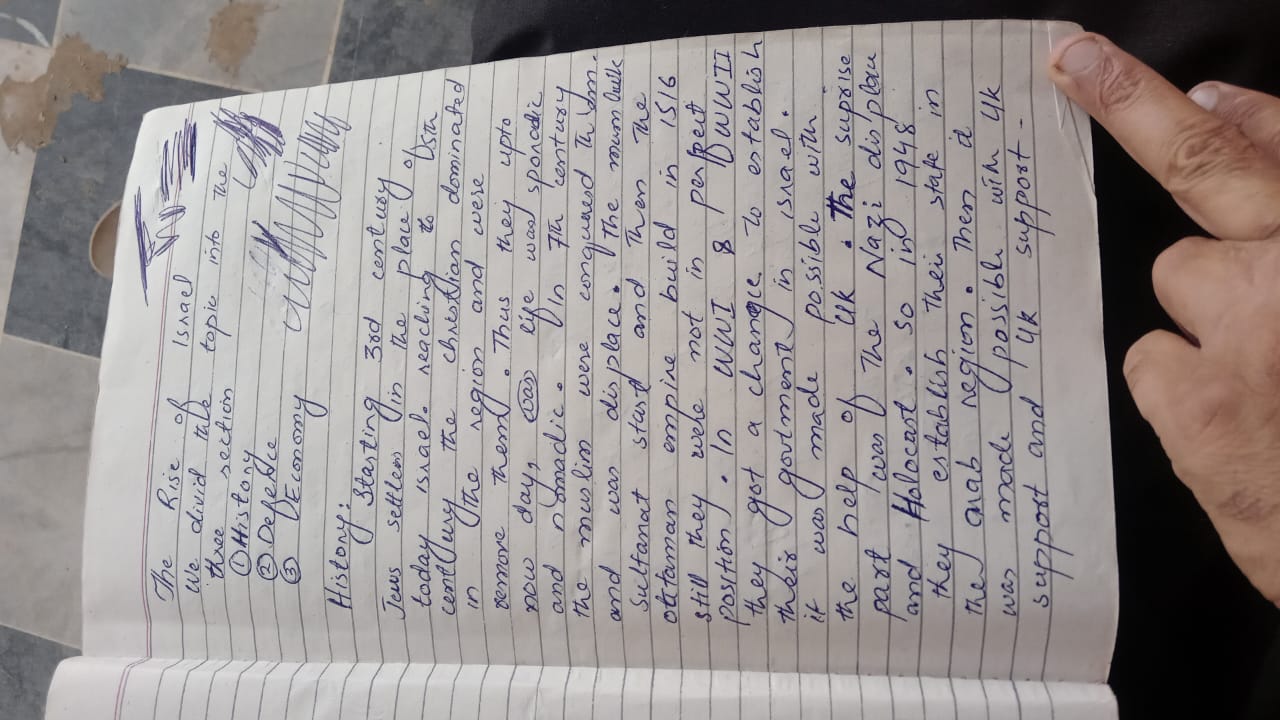 The Rise of Israel
We divid this topic into the
three section
① History
② Defence
③ Economy
History:
Starting 3rd century
Jews settlers in the place of
today israel. reaching to 5th
century the christian dominated
in the region and were
remove them. Thus they upto
now day, life was sporadic
and nomadic. In 7th century
the muslim were conquered them.
and was displace. The mumluik
Sultanat start and then the
ottaman empire build in 1516
still they were not in perfect
position. In WWI & WWII
they got a change to establish
their govtment in israel.
it was made possible with
the help of Uk. The suprise
part was the Nazi displace
and Holocast. So in 1948
they establish their state in
the arab region. Then it
was made possible with Uk
support and Uk support-